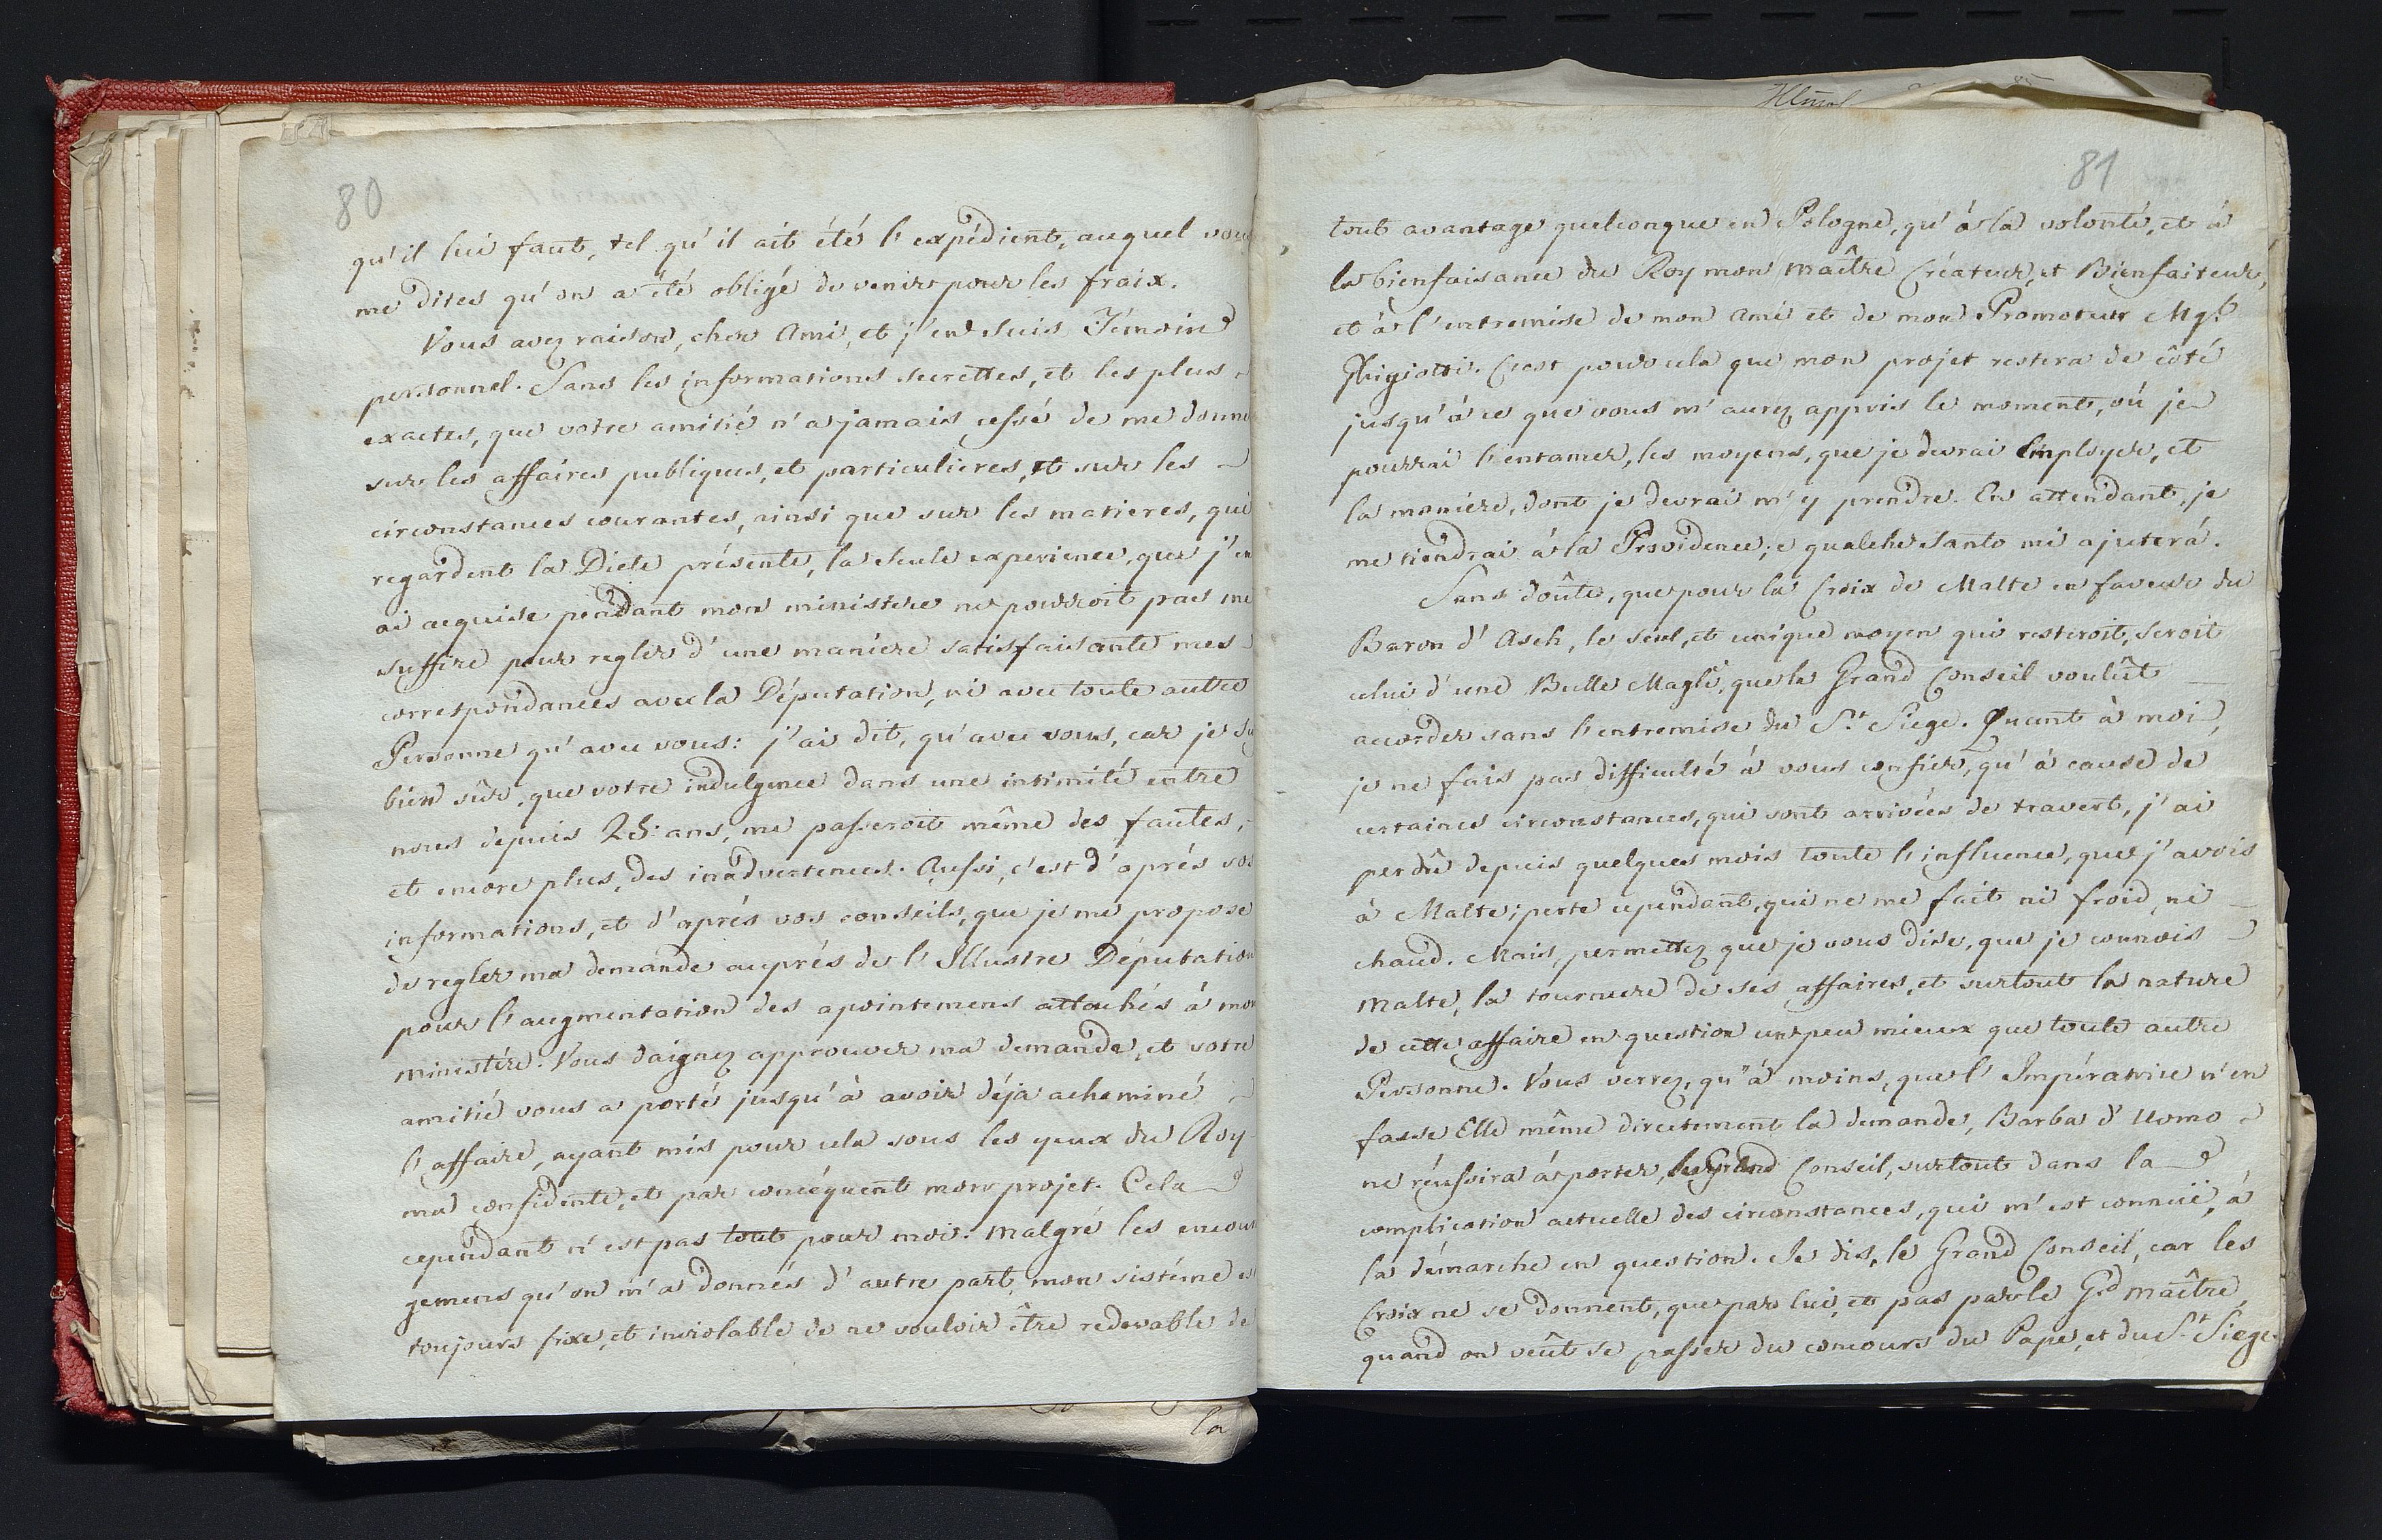 80
qu'il lui faut, tel qu'il ait été l'expédient, auquel vous
me dites qu'on a été obligé de venir pour les fraix.
Vous avez raison, cher Ami, et j'en suis Témoin
personnel. Sans les informations secrettes, et les plus
exactes, que votre amitié n'a jamais cessé de me donne
sur les affaires publiques, et particulieres, et sur les
circonstances courantes, ainsi que sur les matieres, qui
regardent la Diete présente, la seule experience, que j'en
ai acquise pendant mon ministere ne pourroit pas me
suffire pour regler d'une maniere satisfaisante mes
correspondances avec la Députation, ni avec toute autre
Personne qu'avec vous: j'ai dit, qu'avec vous, car je su
bien sûr, que votre indulgence dans une intimité entre
nous depuis 25: ans, me passeroit même des fautes,
et encore plus, des inadvertences. Aussi, c'est d'aprés vos
informations, et d'aprés vos conseils, que je me propose
de regler ma demande auprés de l'Illustre Députation
pour l'augmentation des apointemens attachés à mon
ministére. Vous daignez approuver ma demande, et votre
amitié vous a porté jusqu'à avoir déja acheminé
l'affaire, ayant mis pour cela sous les yeux du Roy
ma confidente, et par conséquent mon projet. Cela
cependant n'est pas tout pour moi. Malgré les encour
gemens qu'on m'a donnés d'autre part, mon sistéme es
toujours fixe, et inviolable de ne vouloir être redevable de
la
81
tout avantage quelconque en Pologne, qu'á la volonté, et á
la bienfaisance du Roy mon Maître Créateur, et Bienfaiteur,
et á l'entremise de mon Ami et de mon Promoteur Mgr
Ghigiotti. C'est pour cela que mon projet restera de côté
jusqu'á ce que vous m'aurez appris le moment, où je
pourrai l'entamer, les moyens, que je devrai employer, et
la maniére, dont je devrai m'y prendre. En attendant, je
me tiendrai á la Providence; e qualche Santo mi ajuterá.
Sans doûte, que pour la Croix de Malte en faveur du
Baron d'Asch, le seul, et unique moyen qui resteroit, seroit
celui d'une Bulle Magle, que le Grand Conseil voulût
accorder sans l'entremise du St Siege. Quant à moi,
je ne fais pas difficulté á vous confier, qu'à cause de
certaines circonstances, qui sont arrivées de travert, j'ai
perdû depuis quelques mois toute l'influence, que j'avois
à Malte; perte cependant, qui ne me fait ni froid, ni
chaud. Mais, permettez que je vous dise, que je connois
Malte, la tournure de ses affaires, et surtout la nature
de cette affaire en question un peu mieux que toute autre
Personne. Vous verrez, qu'á moins, que l'Impératrice n'en
fasse Elle même directement la demande, Barba d'Uomo
ne réussira á porter, le Grand Conseil, surtout dans la
complication actuelle des circonstances, qui m'est connuë, á
la démarche en question. Je dis, le Grand Conseil, car les
Croix ne se donnent, que par lui, et pas par le Gd Maître,
quand on veût se passer du concours du Pape, et du St Siege.